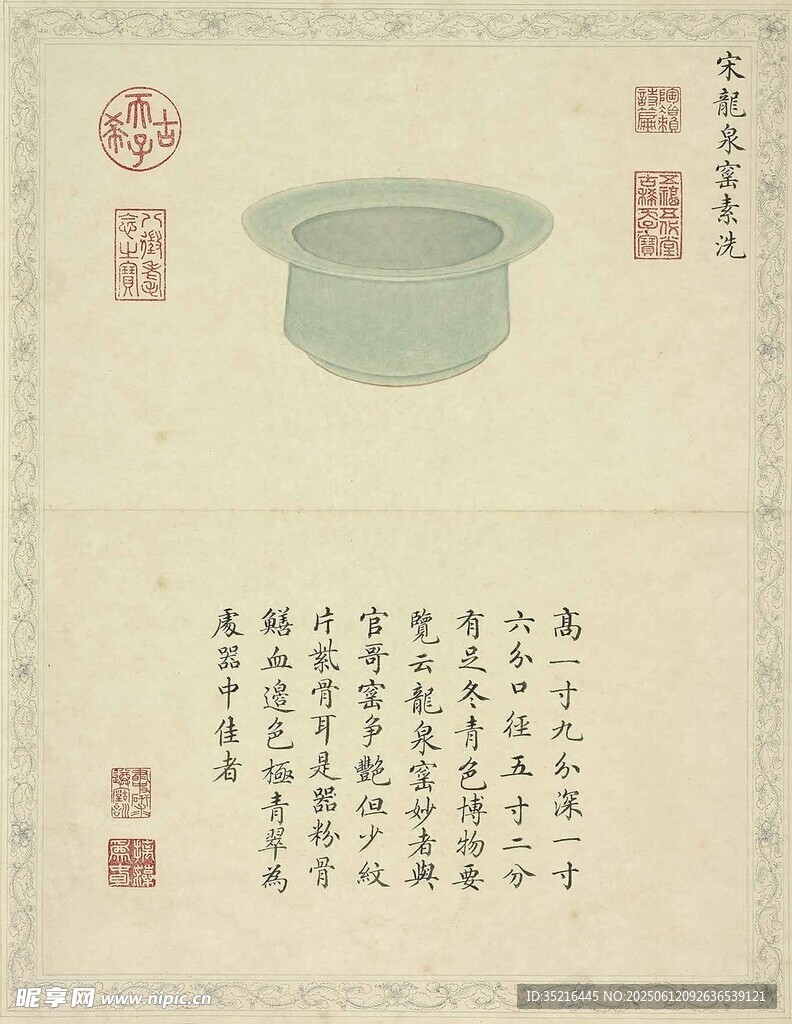 宋龍泉窯素洗
陶韻詩篇
五福五代堂古稀天子寶
古希天子
八徵耄念之寶
高一寸九分深一寸
六分口徑五寸二分
有足冬青色博物要
覽云龍泉窯妙者與
官哥窯争艷但少紋
片紫骨耳是器粉骨
鱔血邊色極青翠為
處器中佳者
昵享网 www.nipic.cn
ID:35216445 NO:20250612092636539121